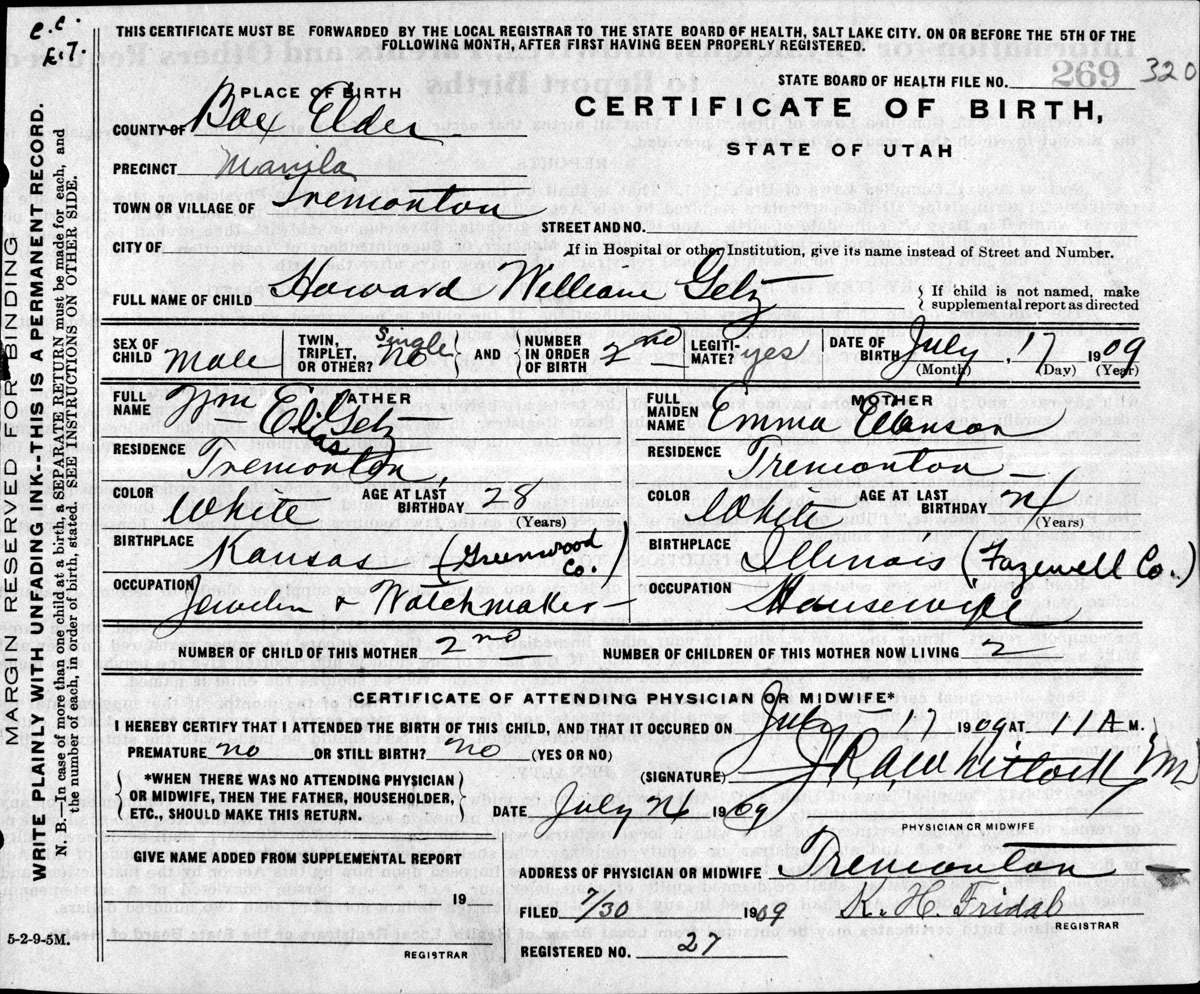 c.c.
£.7.
THIS CERTIFICATE MUST BE FORWARDED BY THE LOCAL REGISTRAR TO THE STATE BOARD OF HEALTH, SALT LAKE CITY. ON OR BEFORE THE 5TH OF THE
FOLLOWING MONTH, AFTER FIRST HAVING BEEN PROPERLY REGISTERED.
STATE BOARD OF HEALTH FILE NO. 269 320
CERTIFICATE OF BIRTH,
STATE OF UTAH
PLACE OF BIRTH
COUNTY OF Box Elder
PRECINCT Manila
TOWN OR VILLAGE OF Tremonton
STREET AND NO.
CITY OF
If in Hospital or other Institution, give its name instead of Street and Number.
FULL NAME OF CHILD Howard William Getz
If child is not named, make
supplemental report as directed
SEX OF CHILD Male
TWIN, TRIPLET, OR OTHER? Single no
AND NUMBER IN ORDER OF BIRTH 2nd
LEGITI-MATE? yes
DATE OF BIRTH July 17 1909
(Month) (Day) (Year)
FATHER
FULL NAME Wm Elias Getz
RESIDENCE Tremonton,
COLOR White AGE AT LAST BIRTHDAY 28 (Years)
BIRTHPLACE Kansas (Greenwood Co.)
OCCUPATION Jeweler & Watchmaker
MOTHER
FULL MAIDEN NAME Emma
RESIDENCE Tremonton
COLOR White AGE AT LAST BIRTHDAY 24 (Years)
BIRTHPLACE Illinois (Tazewell Co.)
OCCUPATION Housewife
NUMBER OF CHILD OF THIS MOTHER 2nd NUMBER OF CHILDREN OF THIS MOTHER NOW LIVING 2
CERTIFICATE OF ATTENDING PHYSICIAN OR MIDWIFE*
I HEREBY CERTIFY THAT I ATTENDED THE BIRTH OF THIS CHILD, AND THAT IT OCCURED ON July 17 1909 AT 11 A M.
PREMATURE no OR STILL BIRTH? no (YES OR NO)
*WHEN THERE WAS NO ATTENDING PHYSICIAN
OR MIDWIFE, THEN THE FATHER, HOUSEHOLDER,
ETC., SHOULD MAKE THIS RETURN.
(SIGNATURE)
DATE July 24 1909
PHYSICIAN OR MIDWIFE
GIVE NAME ADDED FROM SUPPLEMENTAL REPORT
19
REGISTRAR
ADDRESS OF PHYSICIAN OR MIDWIFE Tremonton
FILED 7/30 1909 K. H. Fridal
REGISTRAR
REGISTERED NO. 27
5-2-9-5M.
MARGIN RESERVED FOR BINDING
WRITE PLAINLY WITH UNFADING INK--THIS IS A PERMANENT RECORD.
N. B.—In case of more than one child at a birth, a SEPARATE RETURN must be made for each, and
the number of each, in order of birth, stated. SEE INSTRUCTIONS ON OTHER SIDE.